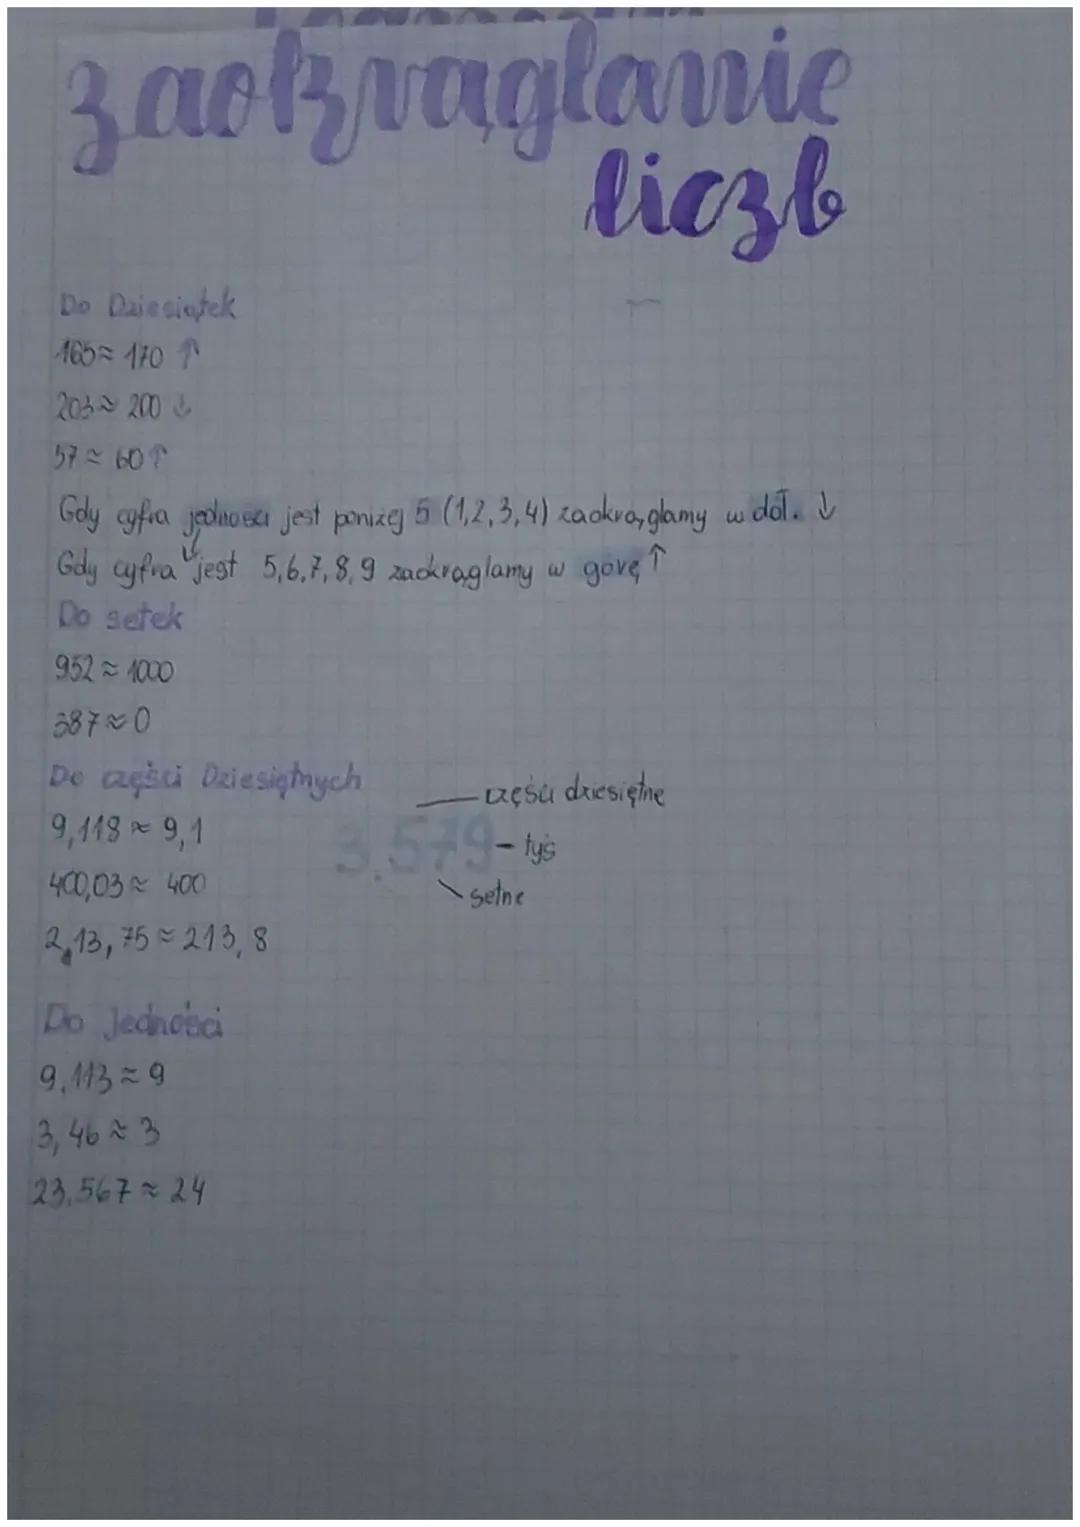 zaokrąglanie
liczb
Do Dziesiątek
165≈ 170 ↑
203≈ 200 ↓
57≈ 60↑
Gdy cyfra jedności jest poniżej 5 (1,2,3,4) zaokrąglamy w dół. ↓
Gdy cyfra jest 5,6,7,8,9 zaokrąglamy w górę ↑
Do setek
952≈ 1000
387≈0
Do części Dziesiętnych
części dziesiętne
9,118≈ 9,1
3,579 - tyś
400,03≈ 400
setne
2,13,75≈213,8
Do Jedności
9,113≈9
3,46≈ 3
23,567≈ 24